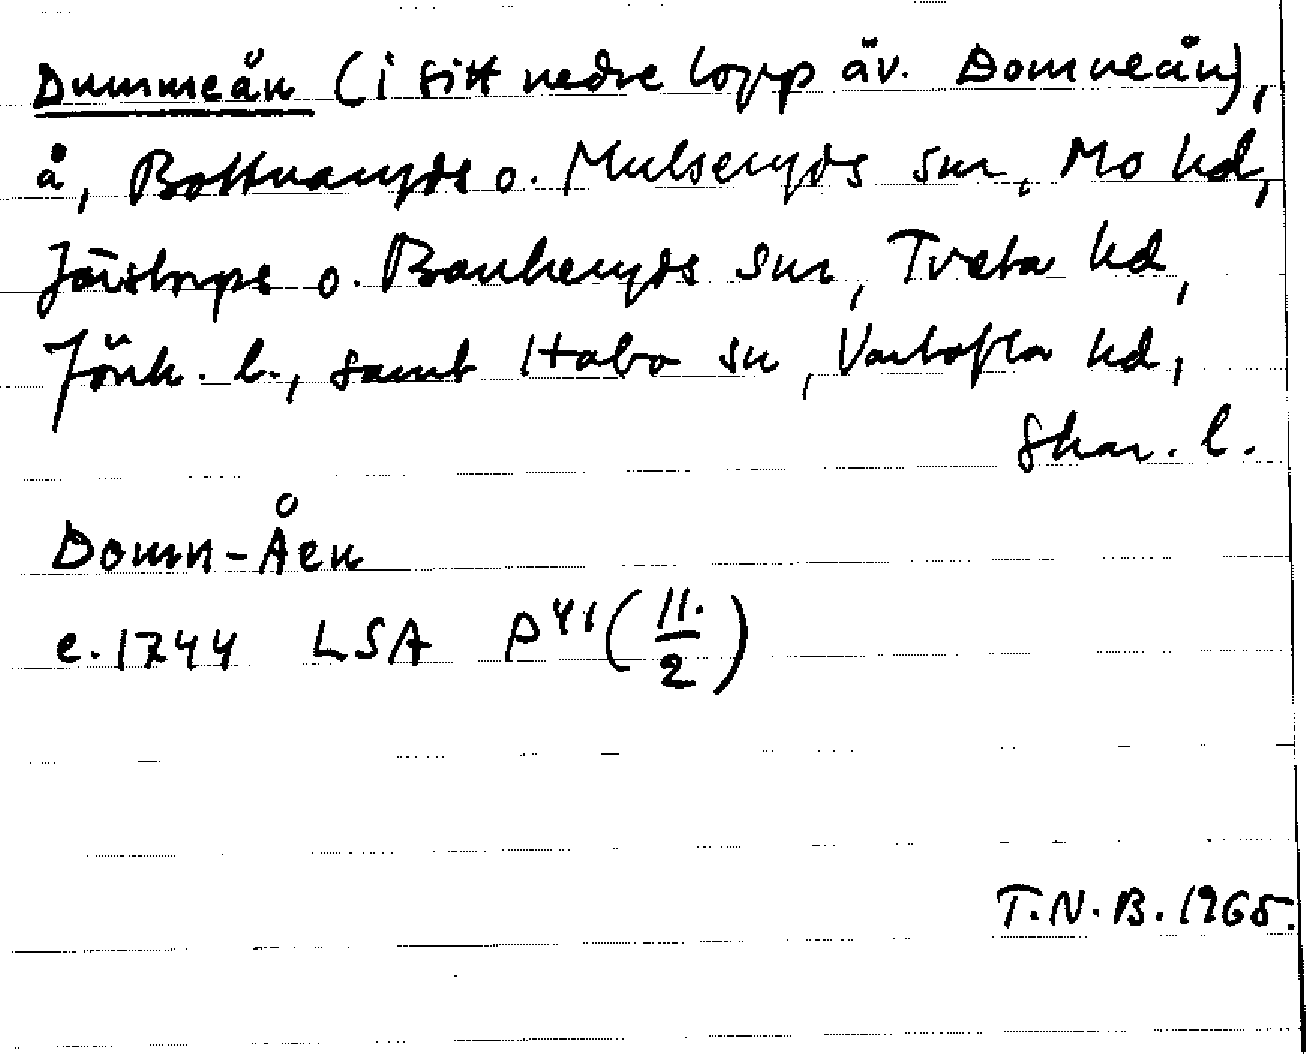 Dummeån (i sitt nedre lopp äv. Domneån),
å, Bottnaryds o. Mulseryds snr, Mo hd,
Järstorps o. Bankeryds snr, Tveta hd,
Jönk. l., samt Habo sn, Vartofta hd,
Skar. l.
Domn-Åen
c. 1744 LSA P 41 (11./2)
T.N.B. 1965.